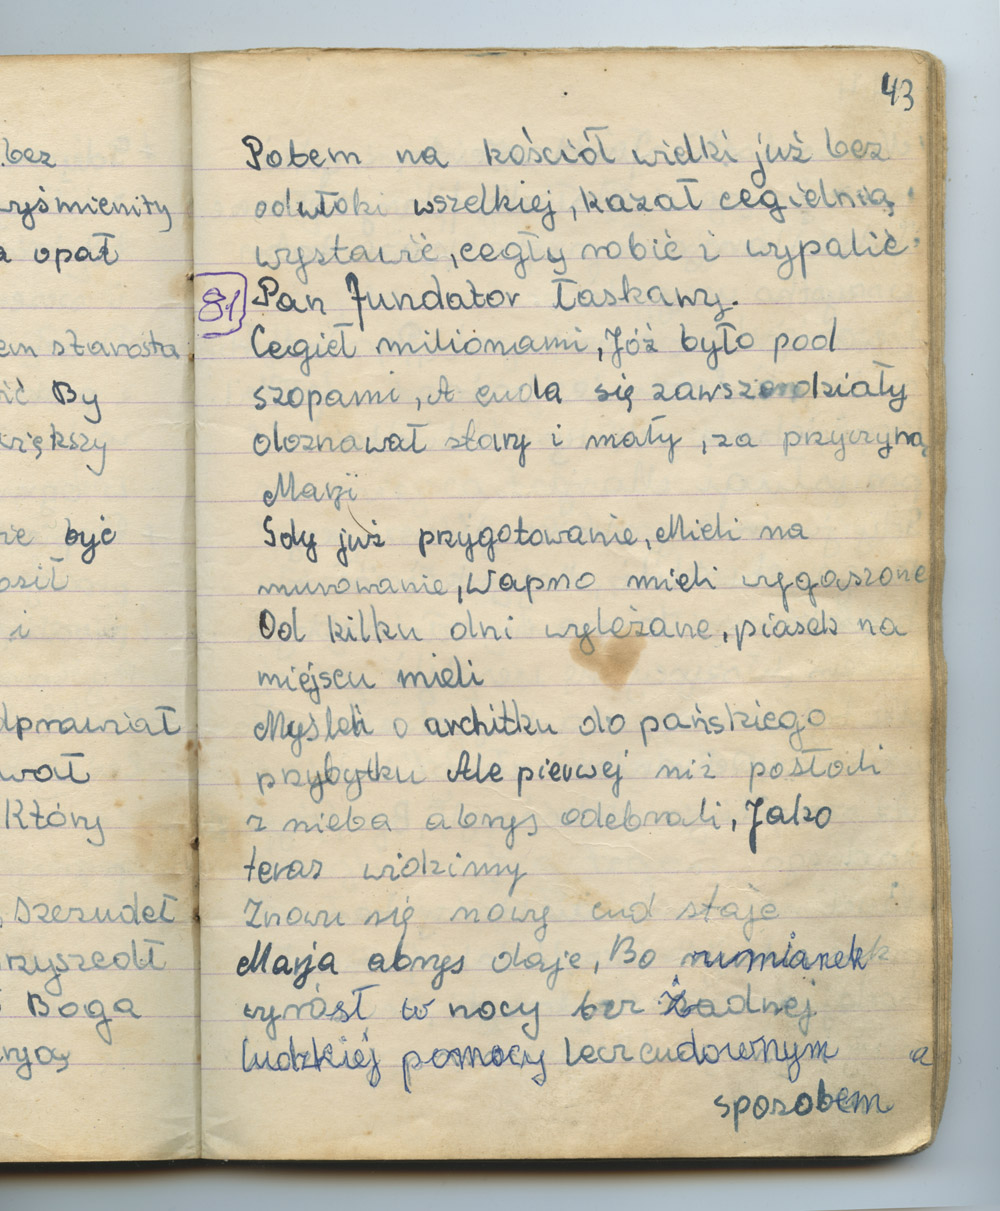 43
bez
wyśmienity
opał
starosta
By
większy
być
osił
i
dprawiał
wał
Który
Szczudeł
rzyszedł
Boga
Potem na kościół wielki już bez
odwłoki wszelkiej, kazał cegielnią
wystawić, cegły robić i wypalić
81 Pan fundator łaskawy.
Cegieł miliónami, Jóż było pod
szopami, A cuda się zawsze działy
doznawał stary i mały, za przyczyną
Marji
Gdy już przygotowanie, Mieli na
murowanie, Wapno mieli wygaszone
Od kilku dni wyleżane, piasek na
miejscu mieli
Myśleli o architku do pańskiego
przybytku Ale pierwej niż posłali
z nieba abrys odebrali, Jako
teraz widzimy
Znowu się nowy cud staje
Marja abrys daje, Bo rumianek
wyrósł w nocy bez żadnej
ludzkiej pomocy lecz cudownym a
sposobem